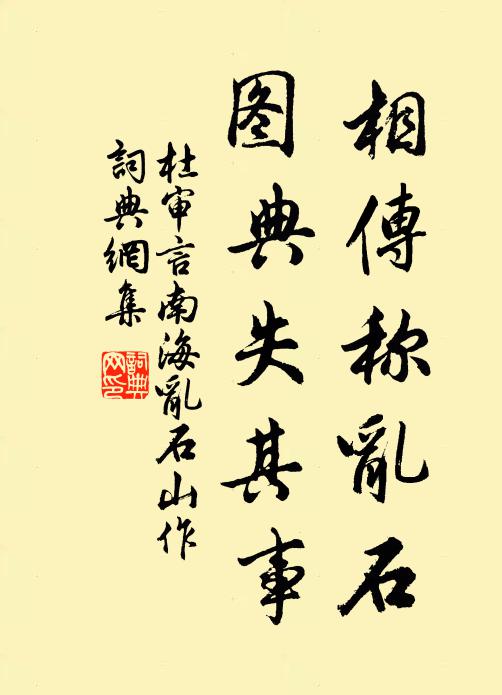 相傳称亂石
图典失其事
杜审言南海亂石山作
詞典網集
詞典
网印